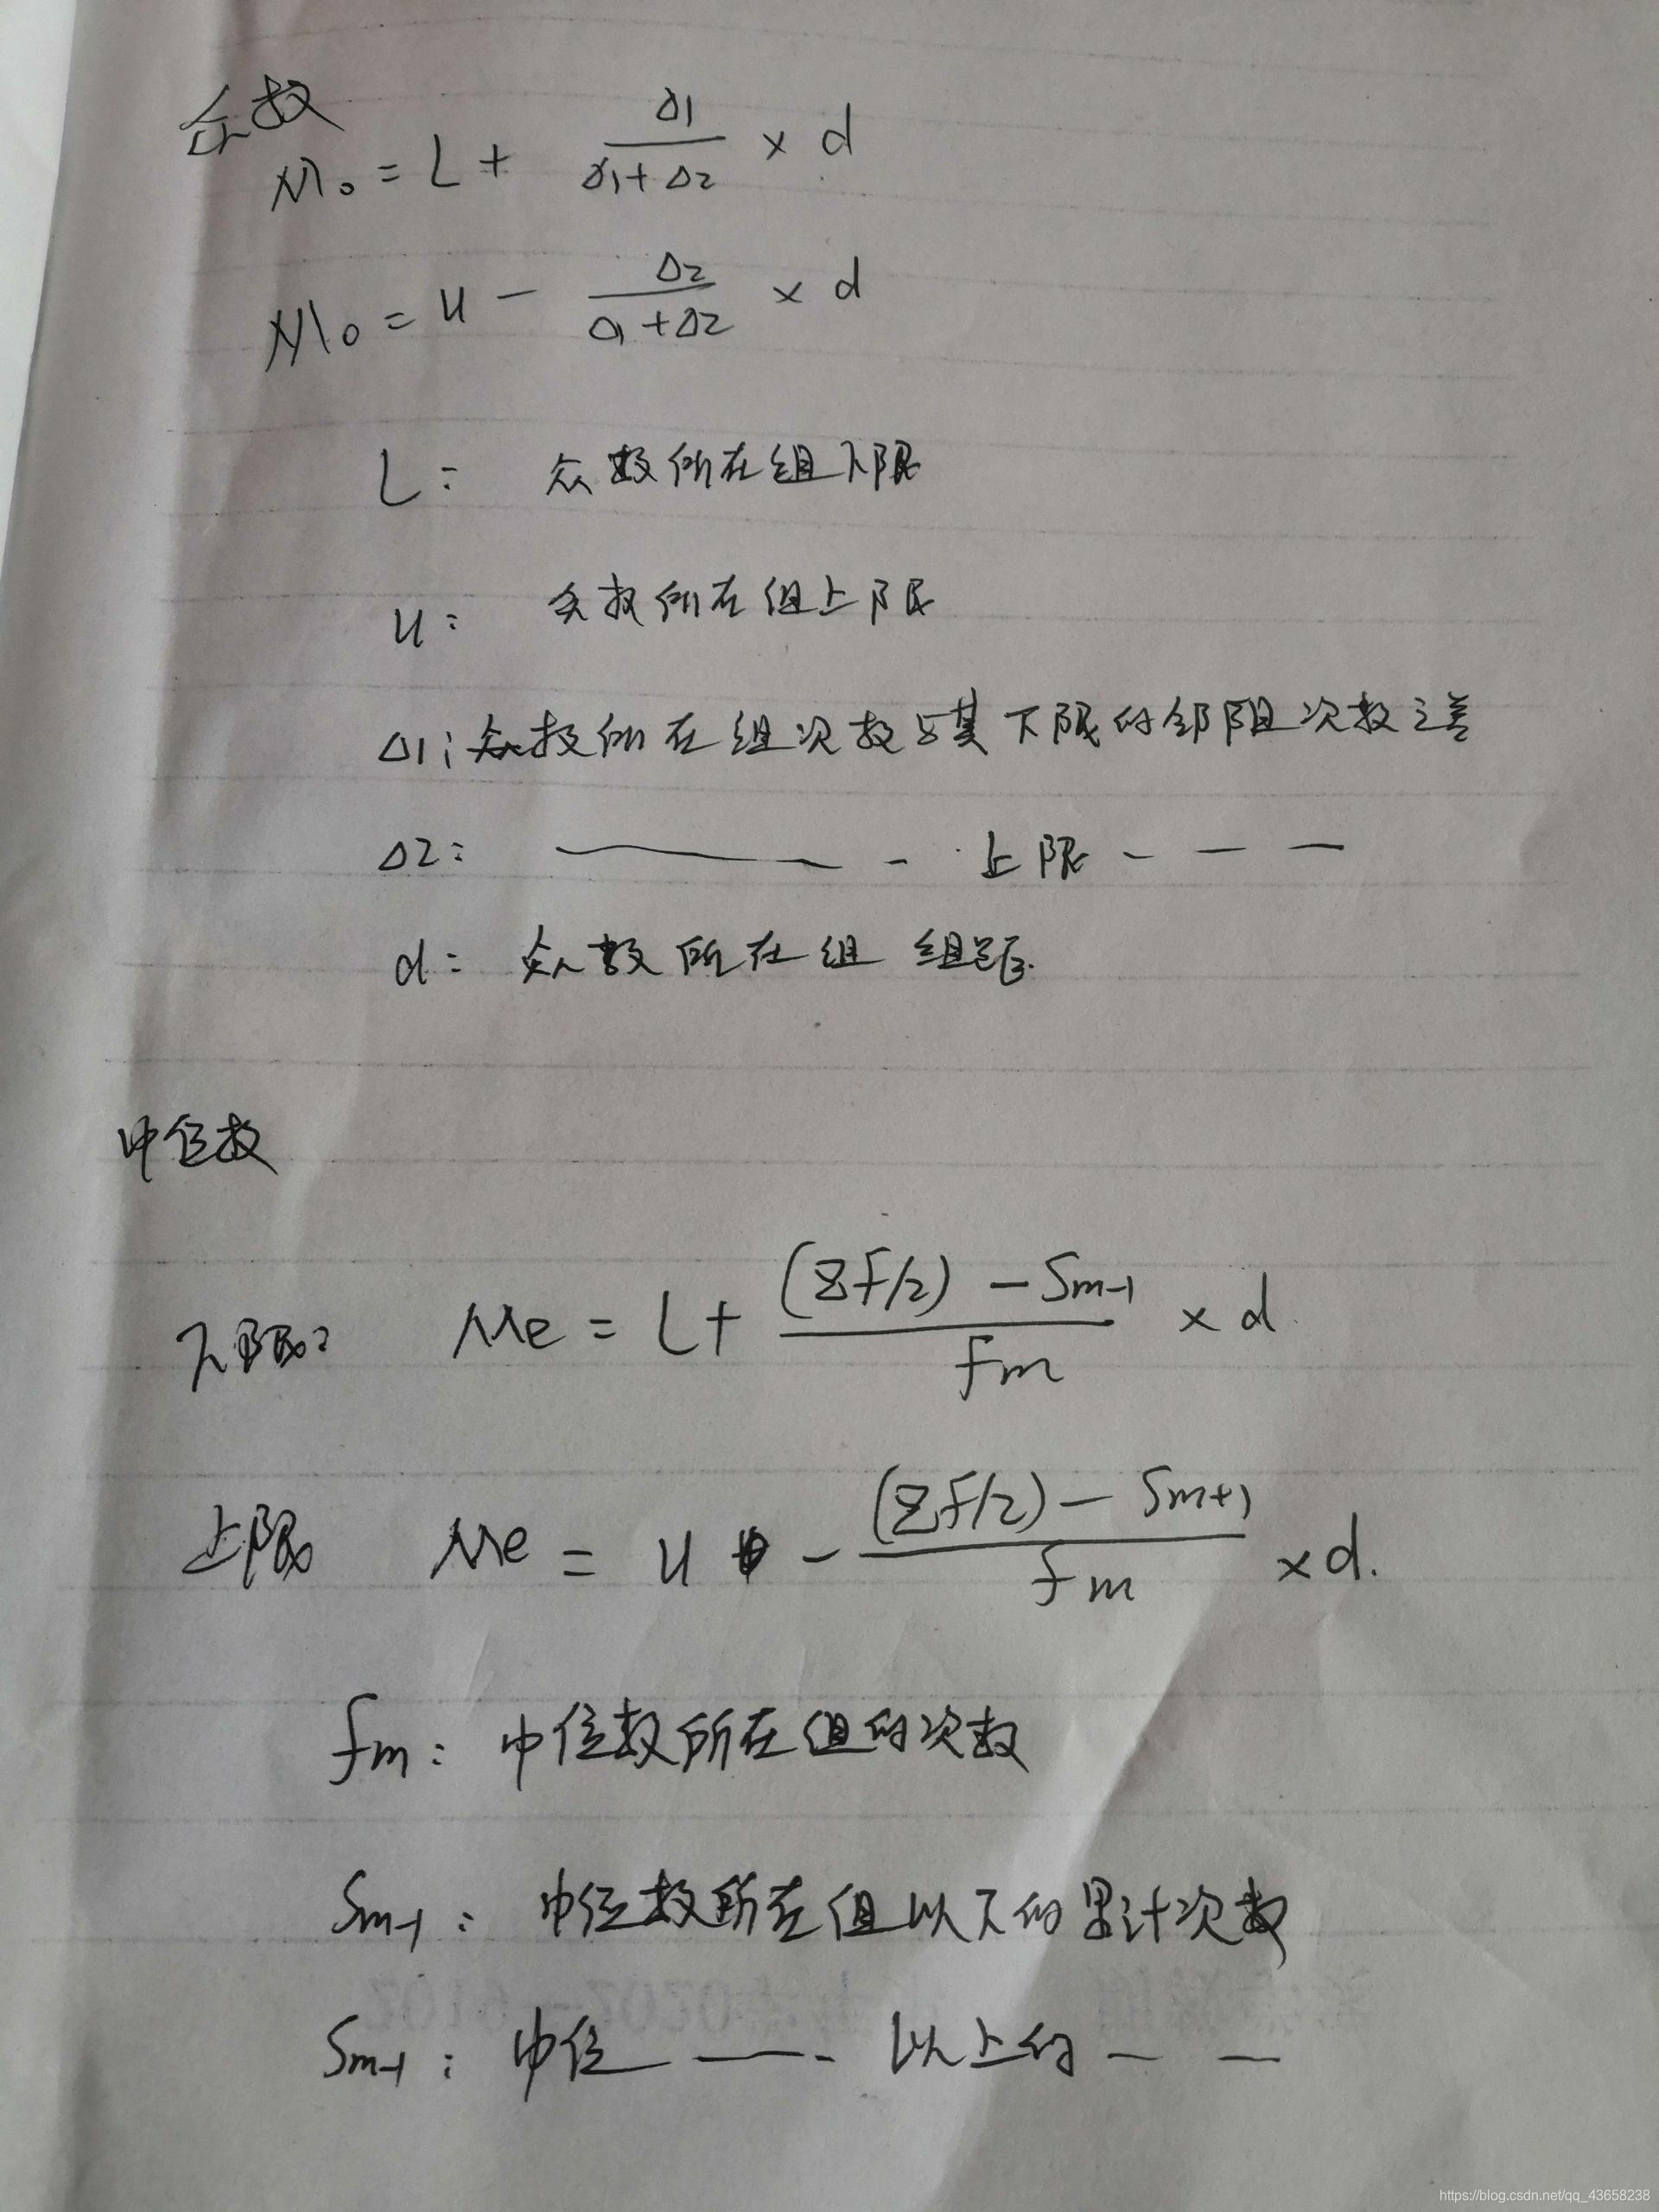 众数
M₀ = L + Δ1/(Δ1+Δ2) × d
M₀ = U - Δ2/(Δ1+Δ2) × d
L: 众数所在组下限
U: 众数所在组上限
Δ1: 众数所在组次数与其下限的邻阻次数之差
Δ2: ———— - 上限 - — —
d: 众数所在组 组距.
中位数
下限: Me = L + ((Σf/2) - Sm-1)/fm × d
上限 Me = U - ((Σf/2) - Sm+1)/fm × d.
fm: 中位数所在组的次数
Sm-1: 中位数所在组以下的累计次数
Sm-1: 中位 ——- 以上的 — —
https://blog.csdn.net/qq_43658238